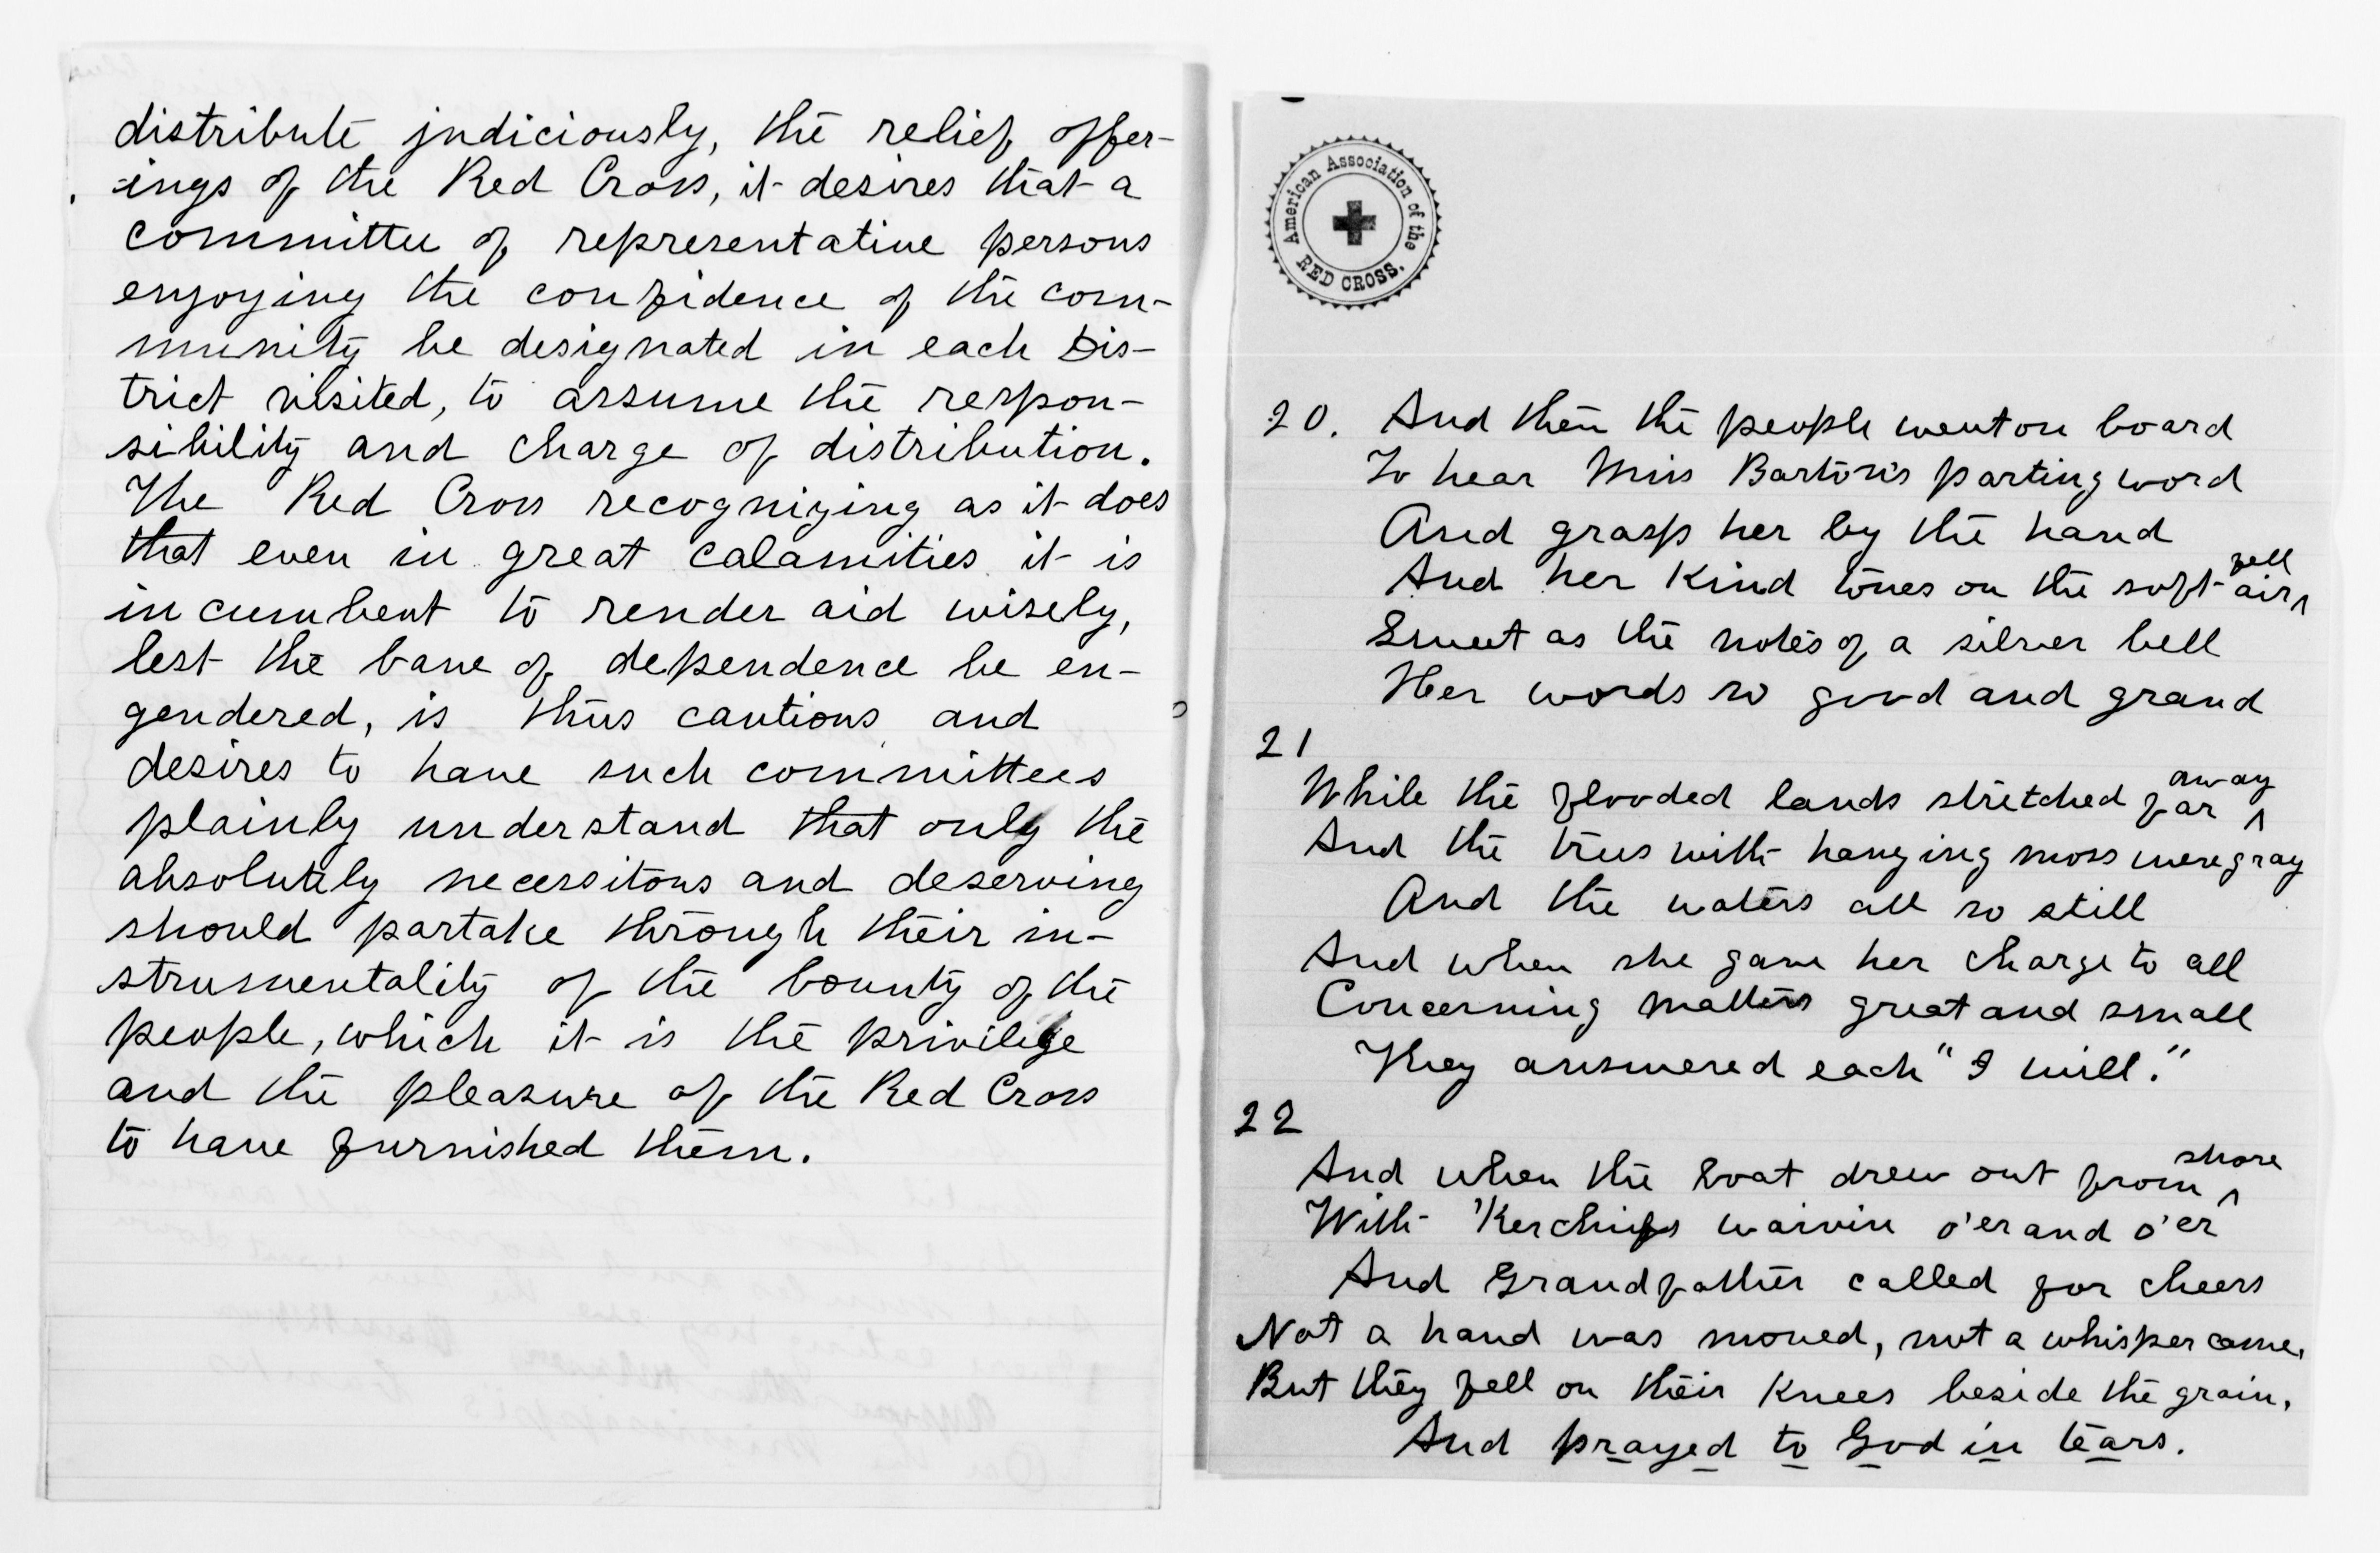 distribute judiciously, the relief offer-
-ings of the Red Cross, it desires that a
committee of representative persons
enjoying the confidence of the com-
munity be designated in each Dis-
trict visited, to assume the respon-
sibility and charge of distribution.
The Red Cross recognizing as it does
that even in great calamities it is
incumbent to render aid wisely,
lest the bane of dependence be en-
gendered, is thus cautious and
desires to have such committees
plainly understand that only the
absolutely necessitous and deserving
should partake through their in-
strumentality of the bounty of the
people, which it is the privilige
and the pleasure of the Red Cross
to have furnished them.
American Association of the
RED CROSS.
20. And then the people went on board
To hear Miss Barton's parting word
And grasp her by the hand
And her kind tones on the soft air ^ fell
Sweet as the notes of a silver bell
Her words so good and grand
21
While the flooded lands stretched far ^ away
And the trees with hanging moss were gray
And the waters all so still
And when she gave her charge to all
Concerning matters great and small
They answered each "I will."
22
And when the boat drew out from ^ shore
With 'Kerchiefs waivin o'er and o'er
And Grandfather called for cheers
Not a hand was moved, not a whisper came,
But they fell on their knees beside the grain,
And prayed to God in tears.